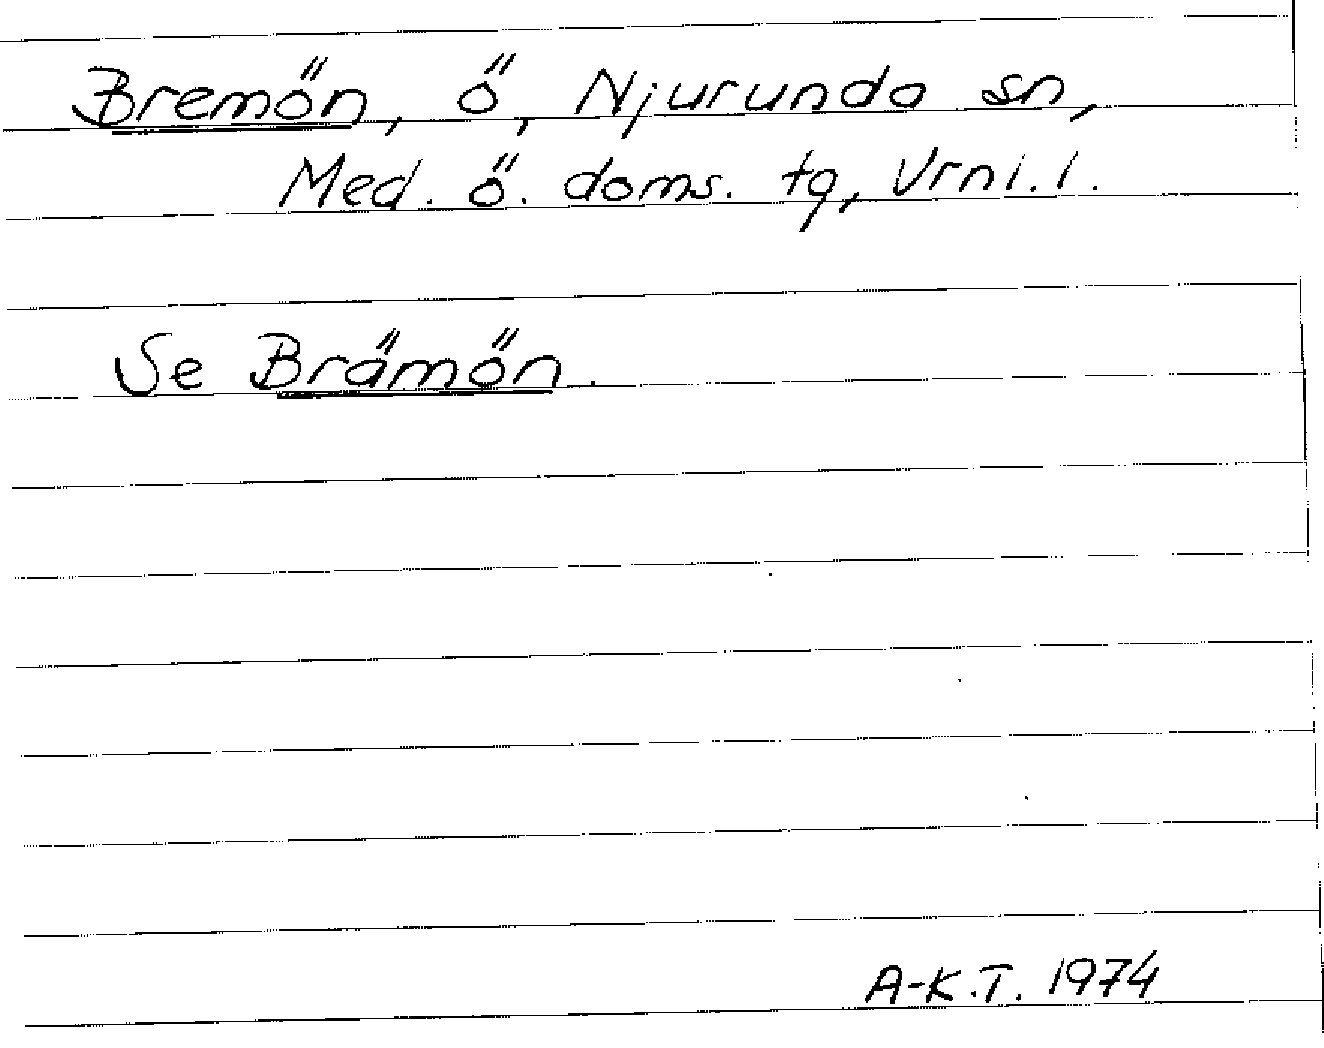 Bremön, ö, Njurunda sn,
Med. ö. doms. tg, Vrnl. l.
Se Brämön.
A-K.T. 1974